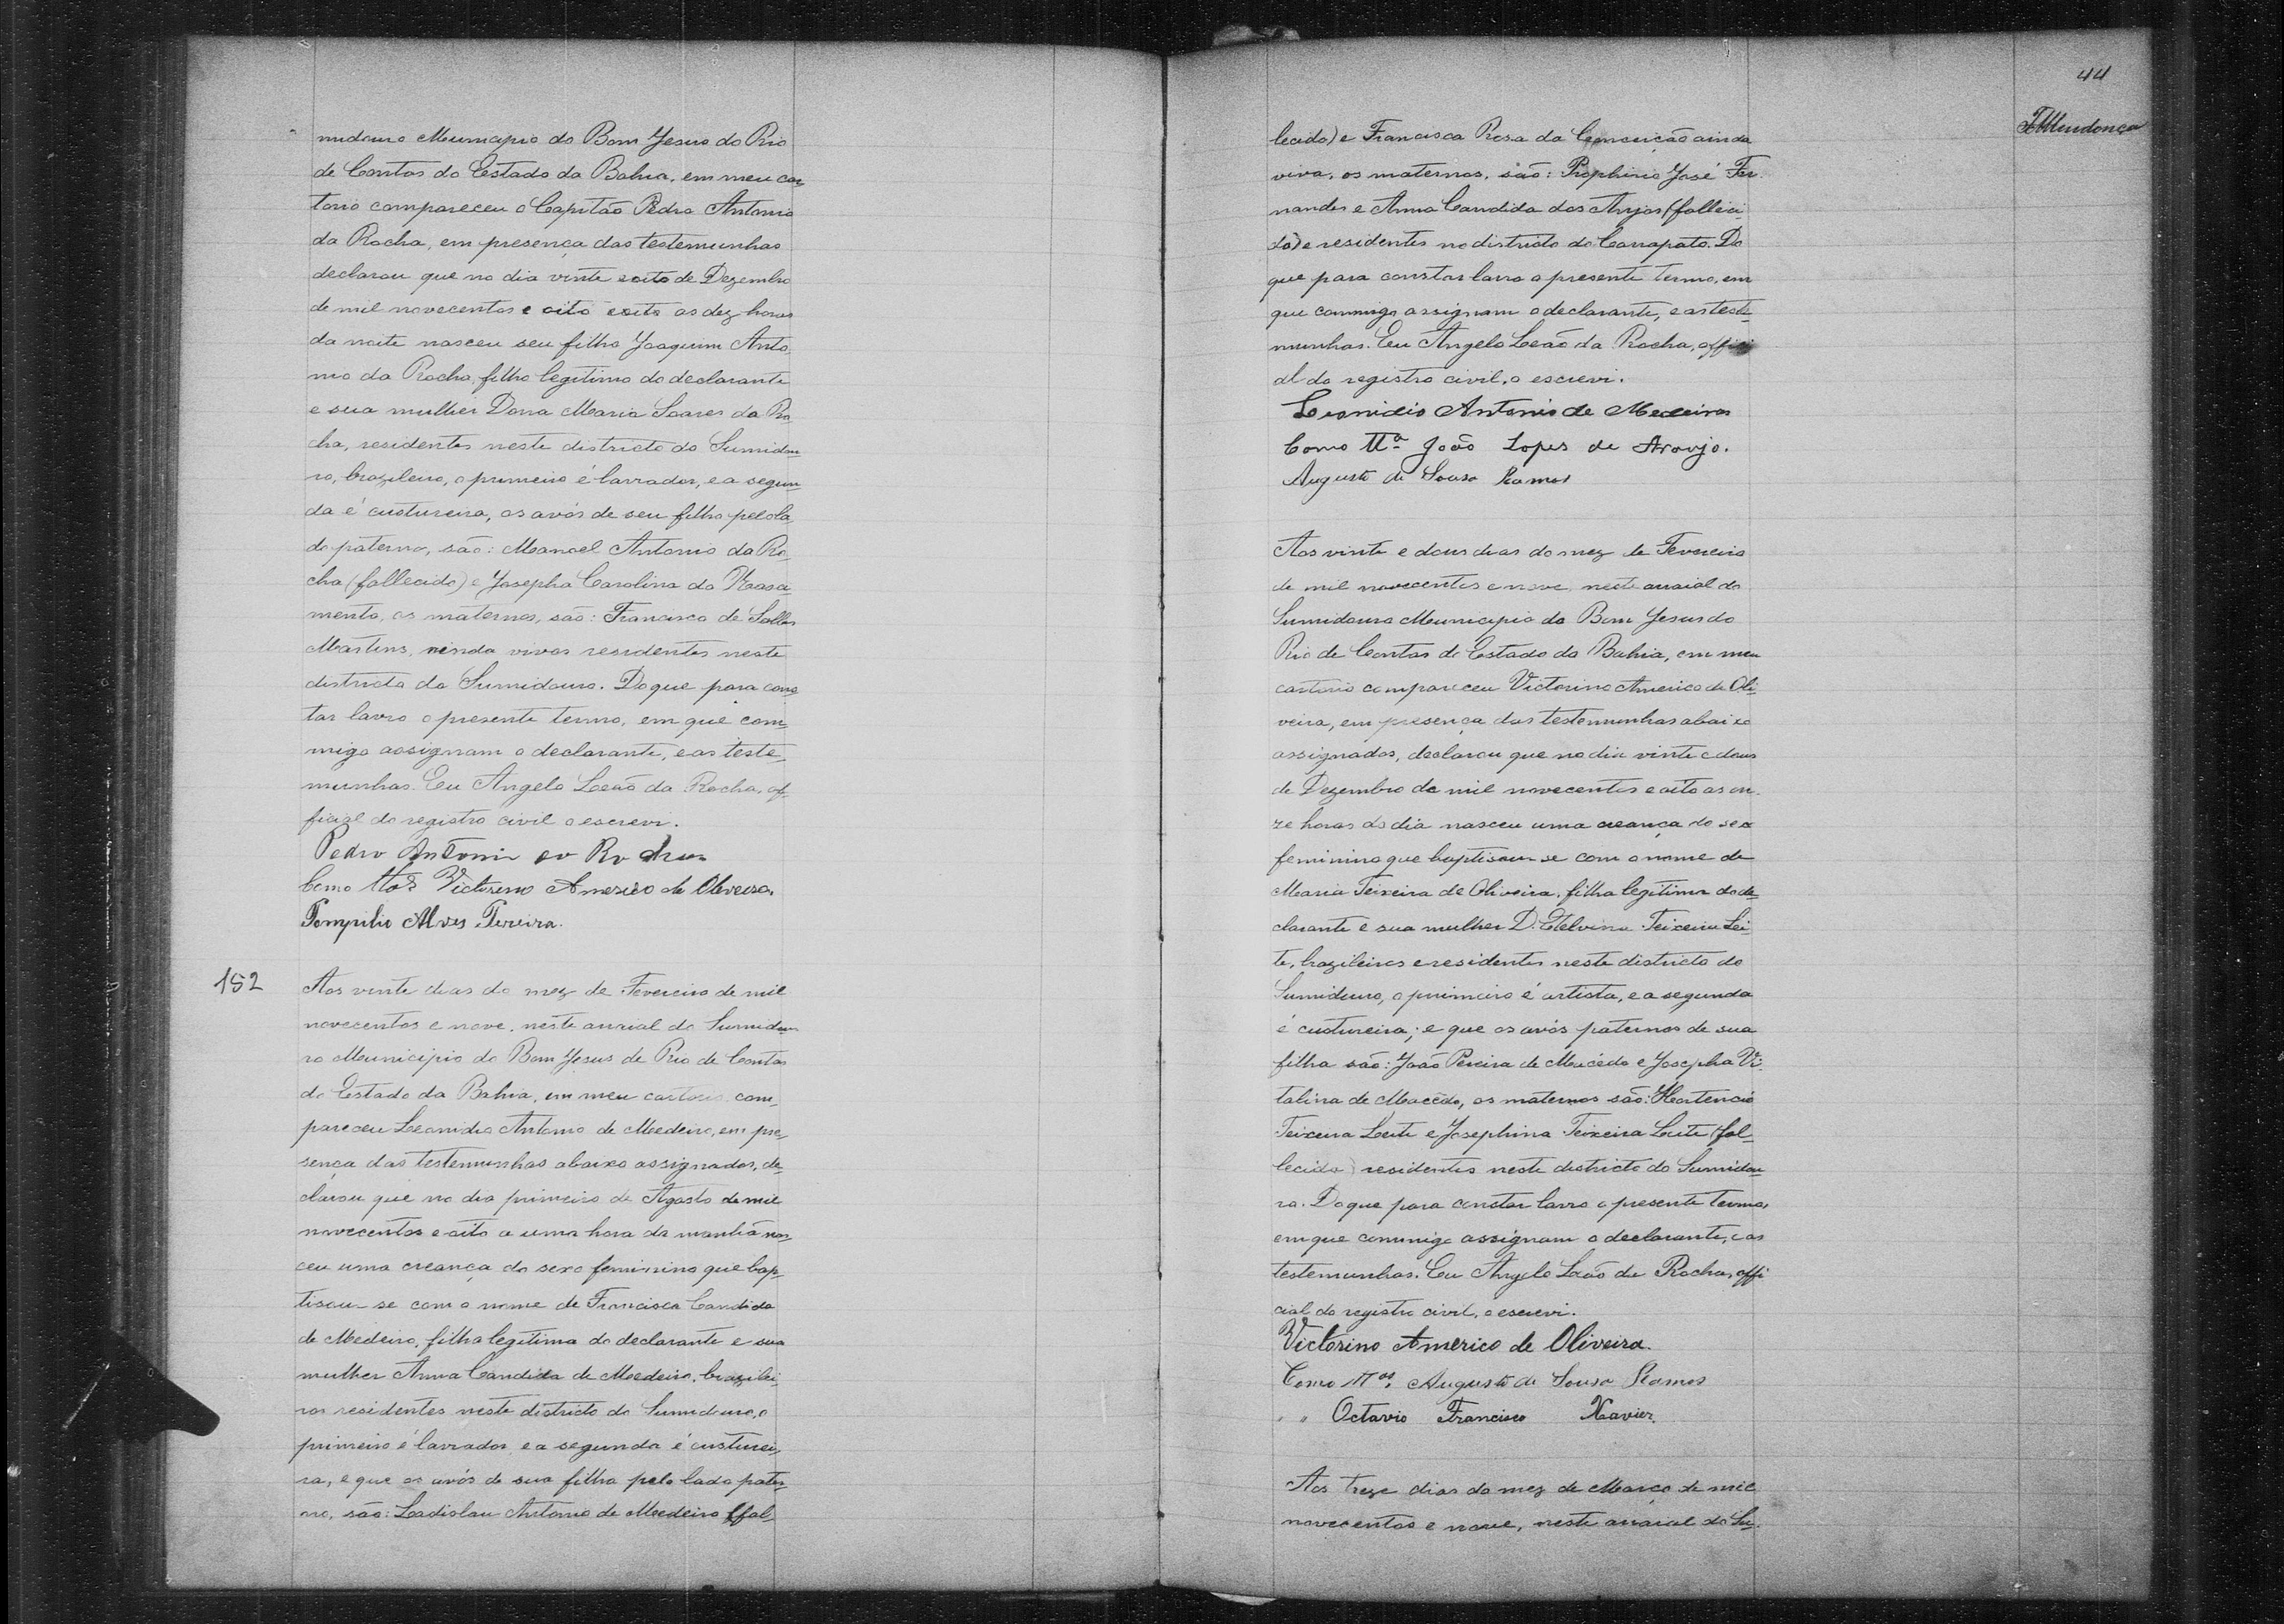 midouro Municipio do Bom Jesus do Rio
de Contas do Estado da Bahia, em meu car
torio compareceu o Capitão Pedro Antonio
da Rocha, em presença das testemunhas
declarou que no dia vinte e oito de Dezembro
de mil novecentos e oito as dez horas
da noite nasceu seu filho Joaquim Anto
nio da Rocha, filho legitimo do declarante
e sua mulher Dona Maria Soares da Ro
cha, residentes neste districto do Sumidou
ro, brazileiro, o primeiro é lavrador, e a segun
da é custureira, os avós de seu filho pelo la
do paterno, são: Manoel Antonio da Ro
cha (fallecido) e Josepha Carolina do Nasci
mento, os maternos, são: Francisco de Salles
Martins, ainda vivos residentes neste
districto do Sumidouro. Do que para cons
tar lavro o presente termo, em que com
migo assignam o declarante, e as teste
munhas. Eu Angelo Leão da Rocha, of
ficial do registro civil o escrevi.
Pedro Antonio da Rocha
Como ttas Victorino Americo de Oliveira.
Pompilio Alves Pereira.
152
Aos vinte dias do mez de Fevereiro de mil
novecentos e nove, neste arraial do Sumidou
ro Municipio do Bom Jesus do Rio de Contas
do Estado da Bahia, em meu cartorio com
pareceu Leonidio Antonio de Medeiro, em pre
sença das testemunhas abaixo assignados, de
clarou que no dia primeiro de Agosto de mil
novecentos e oito a uma hora da manhã nas
ceu uma creança do sexo feminino que bap
tisou-se com o nome de Francisca Candida
de Medeiro, filha legitima do declarante e sua
mulher Anna Candida de Medeiro, brazilei
ros residentes neste districto do Sumidouro, o
primeiro é lavrador, e a segunda é custurei
ra, e que os avós de sua filha pelo lado pater
no, são: Ladislau Antonio de Medeiro (fal
44
lecido) e Francisca Rosa da Conceição ainda
viva, os maternos, são: Prophirio José Fer
nandes e Anna Candida dos Anjos (falleci
do) e residentes no districto do Carrapato. Do
que para constar lavro o presente termo, em
que commigo assignam o declarante, e as teste
munhas. Eu Angelo Leão da Rocha, offici
al do registro civil, o escrevi.
Leonidio Antonio de Medeiros
Como tta João Lopes de Araujo.
Augusto de Sousa Ramos
Aos vinte e dous dias do mez de Fevereiro
de mil novecentos e nove, neste arraial do
Sumidouro Municipio do Bom Jesus do
Rio de Contas do Estado da Bahia, em meu
cartorio compareceu Victorino Americo de Oli
veira, em presença das testemunhas abaixo
assignados, declarou que no dia vinte e dous
de Dezembro de mil novecentos e oito as on
ze horas do dia nasceu uma creança do sexo
feminino que baptisou-se com o nome de
Maria Teixeira de Oliveira, filha legitima do de
clarante e sua mulher D. Etelvina Teixeira Lei
te, brazileiros e residentes neste districto do
Sumidouro, o primeiro é artista, e a segunda
é custureira; e que os avós paternos de sua
filha são: João Pereira de Macêdo e Josepha Vi
talina de Macêdo, os maternos são: Hortencio
Teixeira Leite e Josephina Teixeira Leite (fal
lecida) residentes neste districto do Sumidou
ro. Do que para constar lavro o presente termo,
em que commigo assignam o declarante, e as
testemunhas. Eu Angelo Leão da Rocha, offi
cial do registro civil, o escrevi.
Victorino Americo de Oliveira.
Como ttas. Augusto de Sousa Ramos
" " Octavio Francisco Xavier
Aos treze dias do mez de Março de mil
novecentos e nove, neste arraial do Su